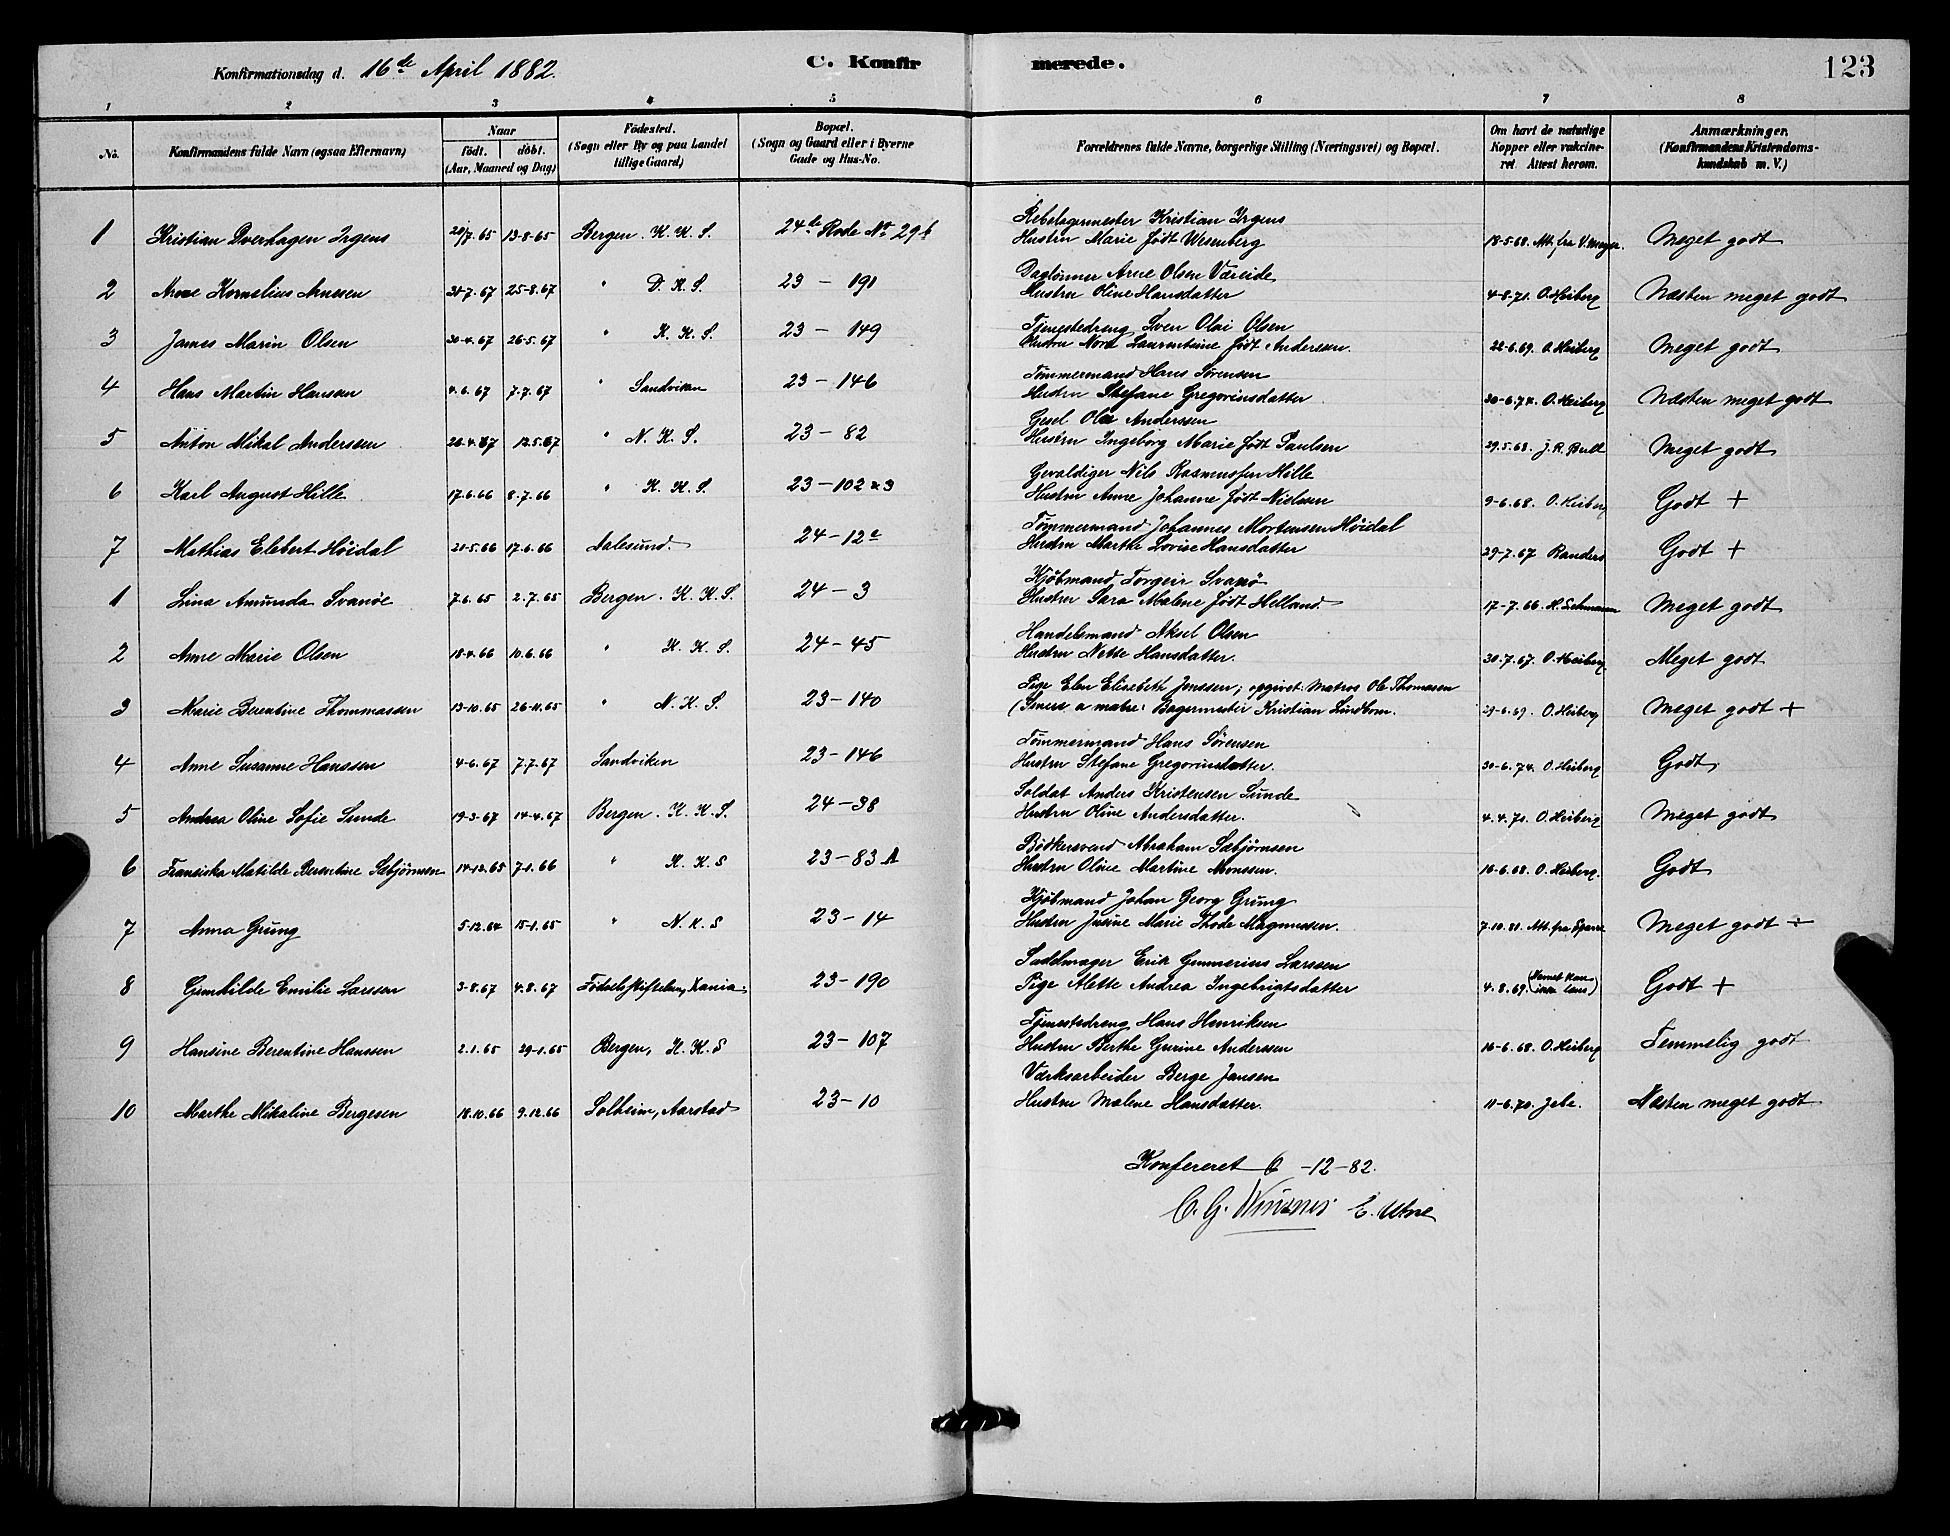 Konfirmationsdag d. 16de April 1882.
C. Konfirmerede.
123
1 2 3 4 5 6 7 8
No.
Konfirmandens fulde Navn (ogsaa Efternavn)
Naar
födt. döbt.
(Aar, Maaned og Dag)
Födested.
(Sogn eller By og paa Landet
tillige Gaard)
Bopæl.
(Sogn og Gaard eller i Byerne
Gade og Hus-No.
Forældrenes fulde Navne, borgerlige Stilling (Næringsvei) og Bopæl.
Om havt de naturlige
Kopper eller vakcine-
ret. Attest herom.
Anmærkninger.
(Konfirmandens Kristendoms-
kundskab m. V.)
Rebslagermester Kristian Irgens
1 Kristian Dverhagen Irgens 20/7.65 13-8-65 Bergen. K. K. S. 24de Rode No 29b Hustru Marie født Wesenberg 18-5-68. Att. fra V. Meyer. Meget godt
Daglönner Arne Olsen Væreide
2 Arne Kornelius Arnesen 30-7.67 25-8.67 " D. K. S. 23 - 191 Hustru Oline Hansdatter 4-8.71. O. Heiberg Næsten meget godt
Tjenestedreng Sven Olai Olsen
3 James Marin Olsen 30-4.67 26-5.67 " K. K. S. 23 - 149 Hustru Nora Laurentine født Anderssen. 22-6.69. O. Heiberg Meget godt
Tömmermand Hans Sörensen
4 Hans Martin Hanssen 4.6.67 7.7.67 " Sandviken 23 - 146 Hustru Stefane Gregoriusdatter 30-6.74. O. Heiberg Næsten meget godt
Gesel Ola Anderssen
5 Anton Mikal Anderssen 26.4.67 12.5.67 " N. K. S. 23 - 82 Hustru Ingeborg Marie født Paulsen 29.5.68. J. R. Bull Meget godt
Gevaldiger Nils Rasmussen Hille
6 Karl August Hille 17.6.66 8.7.66 " K. K. S. 23 - 102 x 3 Hustru Anne Johanne født Nielsen 9-6.68. O. Heiberg Godt +
Tömmermand Johannes Mortensen Höidal
7 Mathias Elebert Höidal 21-5.66 17.6.66 Aalesund. 24 - 12c Hustru Marthe Lovise Hansdatter 29-7.67 Randers Godt +
Kjöbmand Torgeir Svanö
1 Lina Amunda Svanöe 7.6.65 2.7.65 Bergen. K. K. S. 24 - 3 Hustru Sara Malene født Helland. 17-7.66. Meget godt
Handelsmand Aksel Olsen
2 Anne Marie Olsen 18.4.66 10.6.66 " K. K. S. 24 - 45 Hustru Nette Hansdatter. 30.7.67. O. Heiberg Meget godt
Pige Elen Elisabeth Jenssen; opgivet: Matros Ole Thomasen
3 Marie Berentine Thommassen 13-10.65 26-11.65 " N. K. S. 23 - 140 Bagermester Kristian Lindbom. 29-6.69. O. Heiberg Meget godt +
Tömmermand Hans Sörensen
4 Anne Susanne Hanssen 4-6.67 7.7.67 Sandviken 23 - 146 Hustru Stefane Gregoriusdatter. 30-6.74. O. Heiberg Godt
Soldat Anders Kristensen Sunde
5 Andrea Oline Sofie Sunde 19-3.67 14-4.67 Bergen. K. K. S. 24 - 38 Hustru Oline Andersdatter. 4.4.71. O. Heiberg Meget godt
Bödkersvend Abraham Sæbjörnsen
6 Fransiska Matilde Berentine Sæbjörnsen 14-12.65 7-1.66 " K. K. S 23 - 83 A Hustru Oline Martine Monssen. 16-6.68. O. Heiberg. Godt
Kjöbmand Johan Georg Grung
7 Anna Grung 5-12.64 15-1.65 " N. K. S 23 - 14 Hustru Justine Marie Thode Magnussen. 7.10.81. Att. fra Sparre Meget godt +
Sadelmager Erik Gunnerius Larssen
8 Gunhilde Emilie Larssen 3-8.67 4.8.67 Fødselsstiftelsen, Kania. 23 - 190 Pige Mette Andrea Ingebrigtsdatter 4.8.69. (Navnet kan ikke læses) Godt +
Tjenestedreng Hans Henriksen
9 Hansine Berentine Hanssen 2.1.65 29-1.65 Bergen, K. K. S 23 - 107 Hustru Berthe Gurine Anderssen 16-6.68. O. Heiberg Temmelig godt
Værksarbeider Berge Jansen
10 Marthe Mikaline Bergesen 18.10.66 9.12.66 Solheim, Aarstad 23 - 10 Hustru Malene Hansdatter. 11-6.70. Jebe. Næsten meget godt
Konfereret 6 -12-82.
C. G. E. Utne